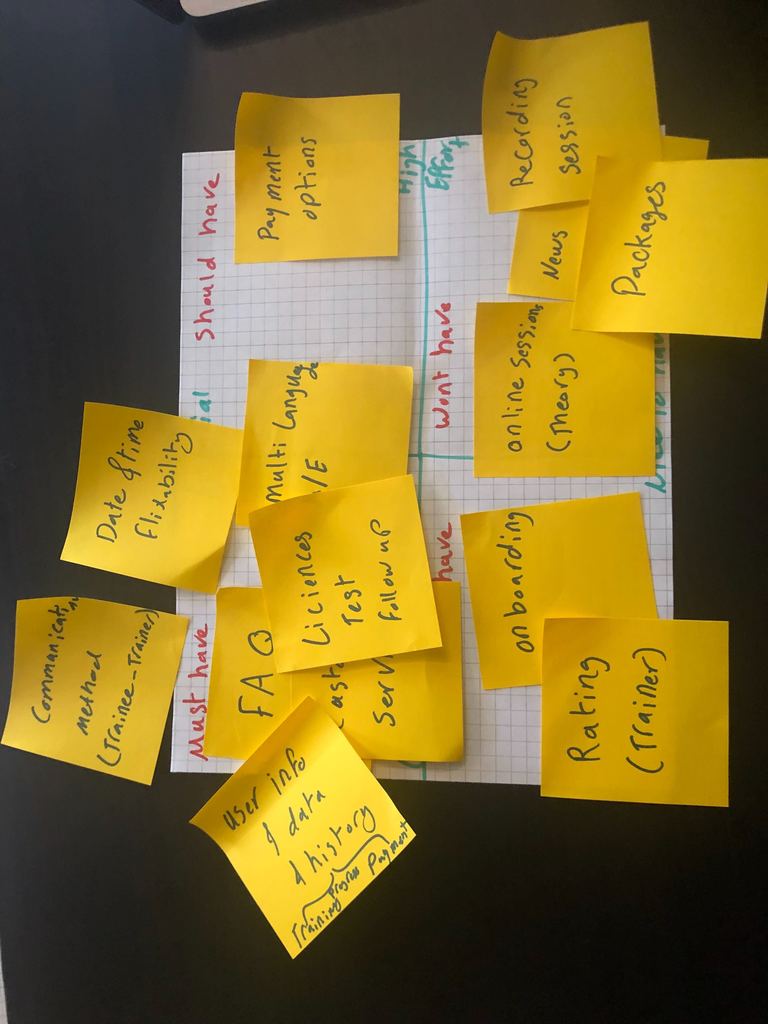 Communication
method
(Trainee-Trainer)
Date & time
flixability
Must have
ial
Should have
User info
& data
& history
Training Progress Payment
FAQ
Serv
Liciences
Test
follow up
Multi Language
/E
Payment
options
High
Effort
have
Wont have
onboarding
Rating
(Trainer)
online sessions
(Theory)
News
Recording
session
Packages
Nice to hav